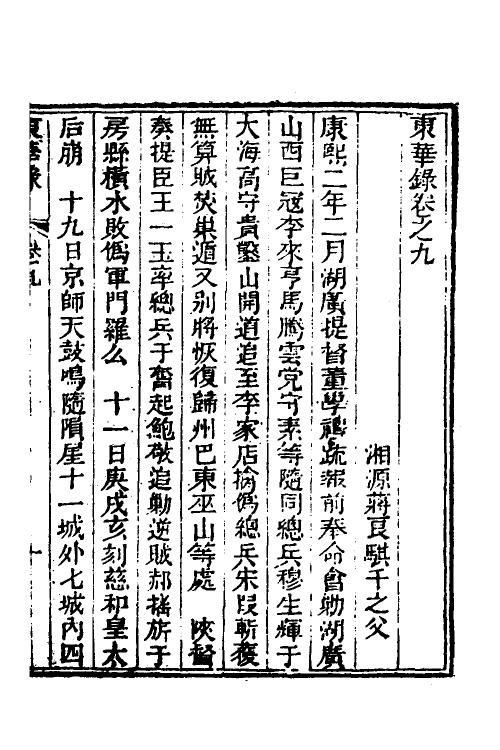 東華錄卷之九
湘源蔣良騏千之父
康熙二年二月湖廣提督董學禮疏報前奉命會勦湖廣
山西巨寇李來亨馬騰雲党守素等隨同總兵穆生輝于
大海高守貴鑿山開道追至李家店擒僞總兵宋段斬獲
無算賊焚巢遁又别將恢復歸州巴東巫山等處　陜督
奏提臣王一正率總兵于奮起鮑敬追勦逆賊郝搖旂于
房縣橫水敗僞軍門羅么　十一日庚戌亥刻慈和皇太
后崩　十九日京師天鼓鳴隨隕星十一城外七城內四
東華錄　卷九